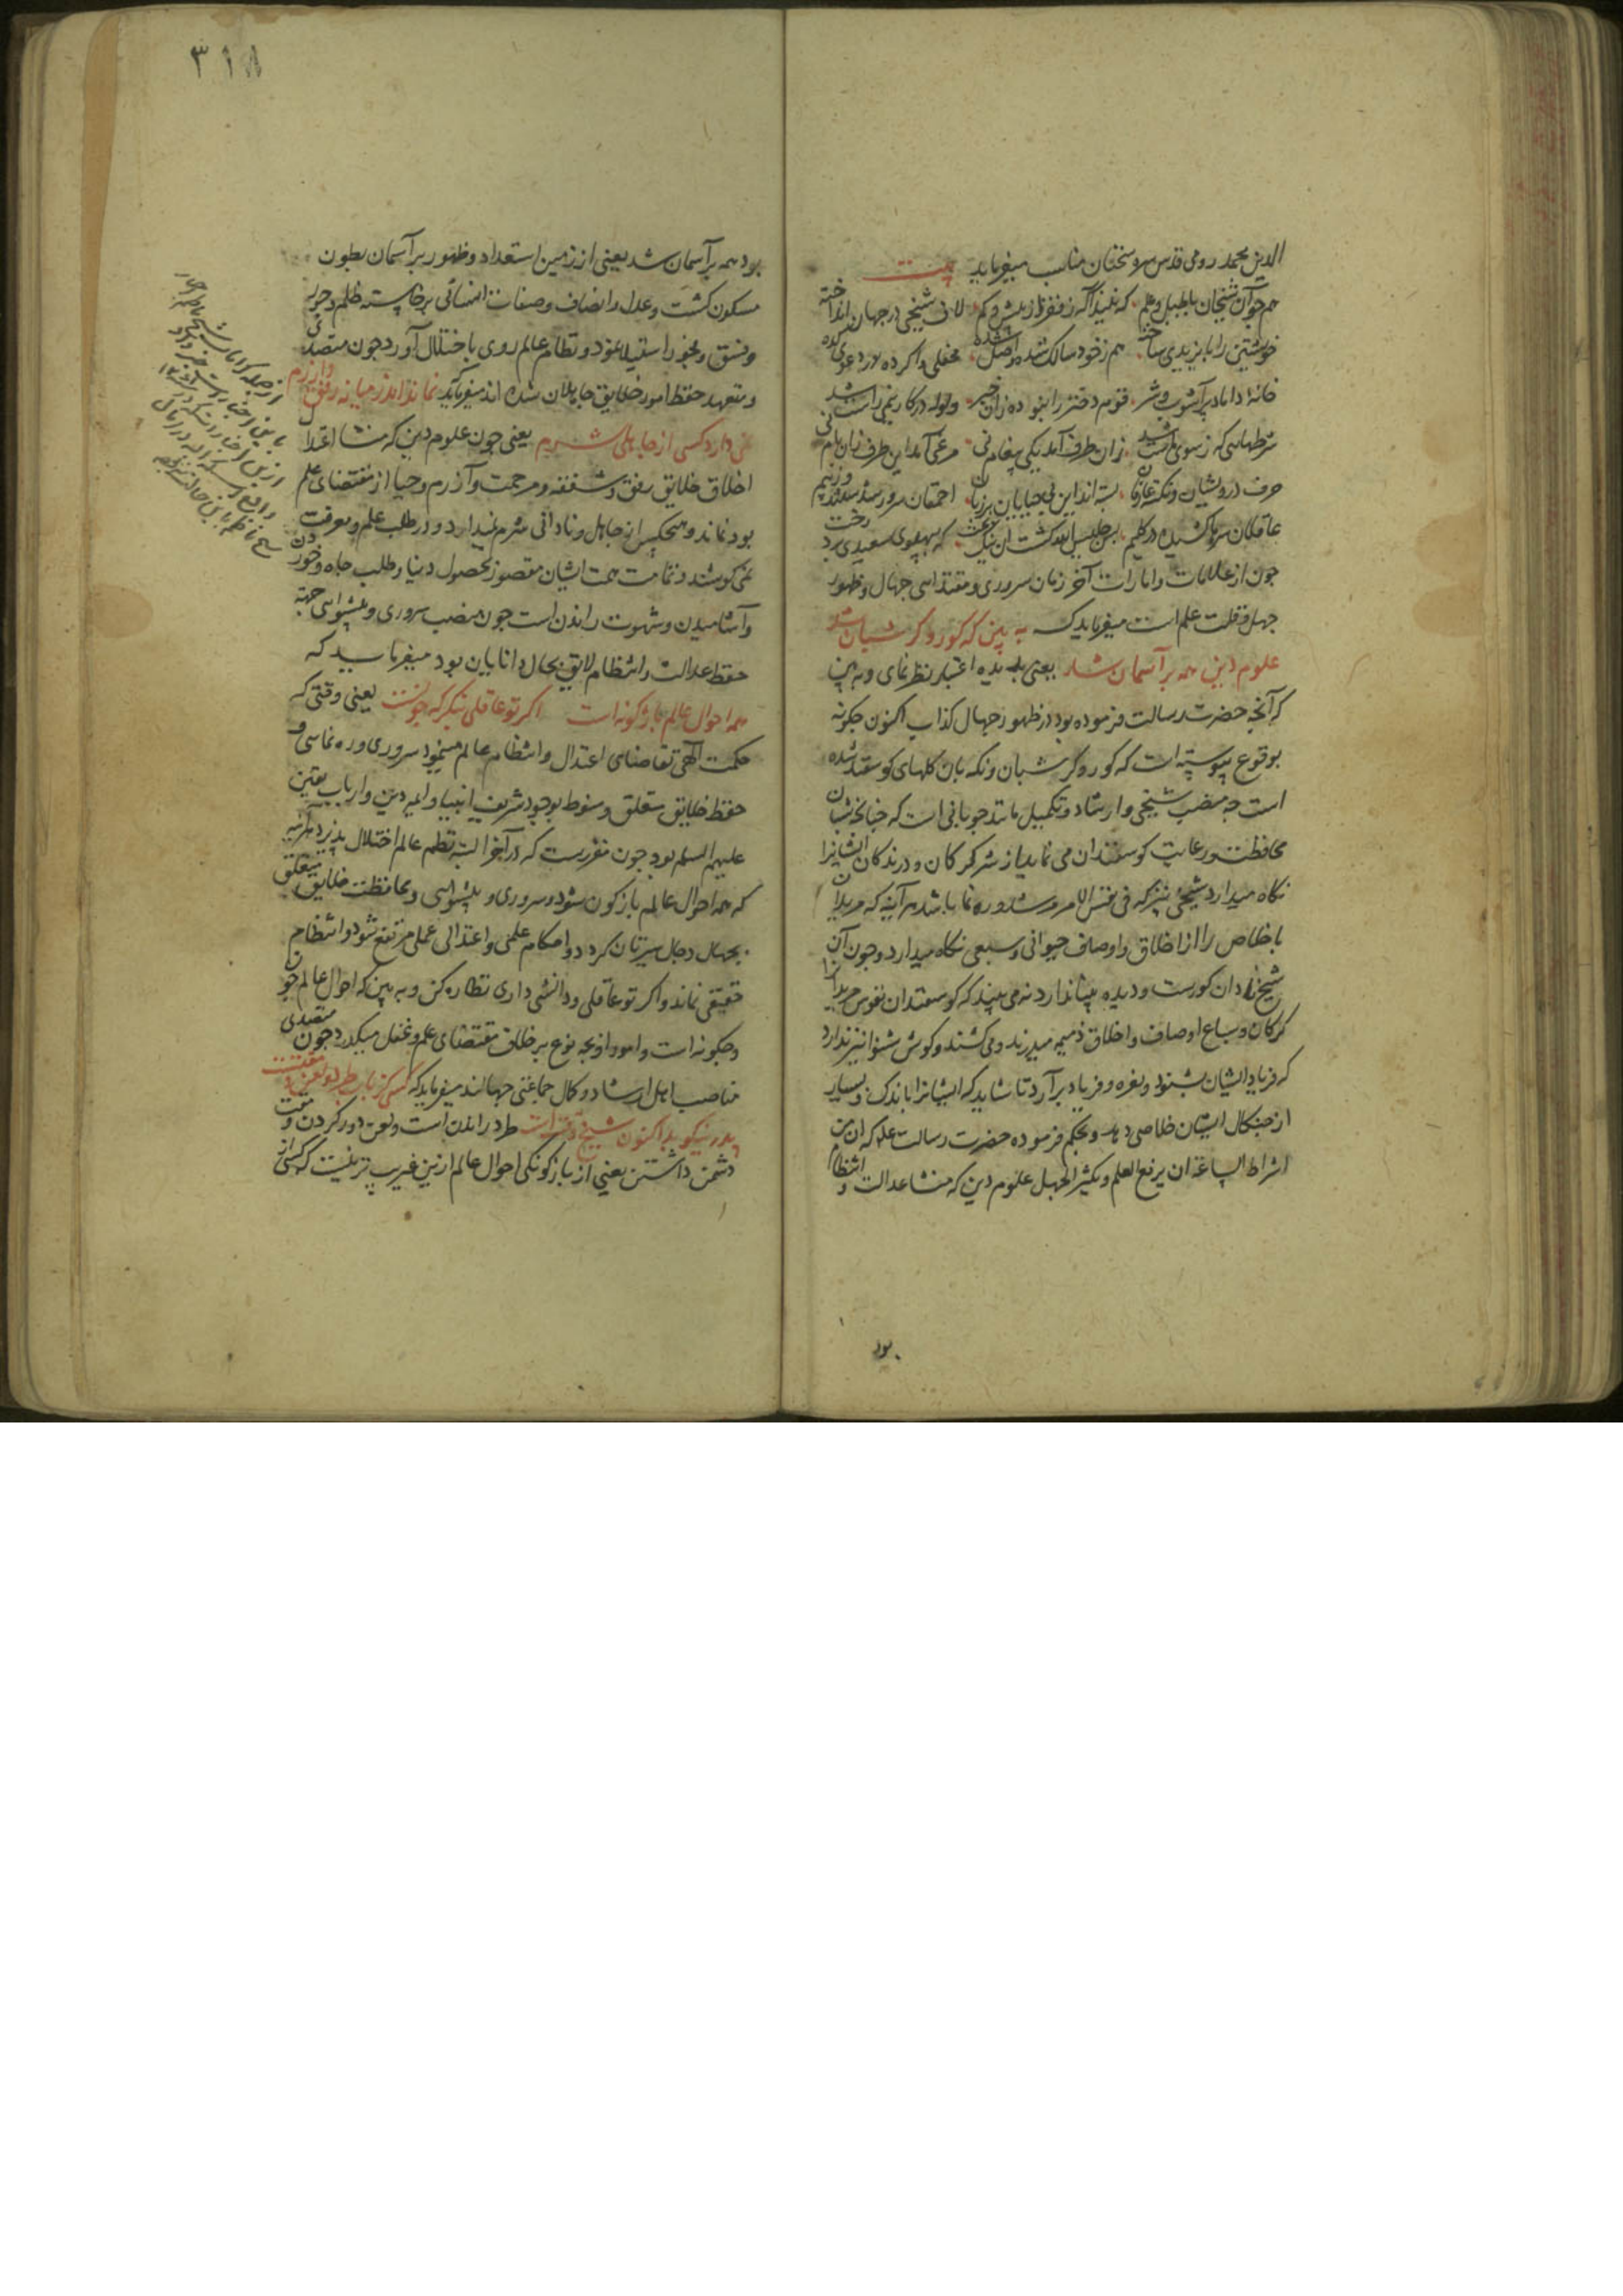 الدین محمد رومی قدس سره سخنان مناسب میفرماید بیت
همچو آن شیخان با طبل و علم که نیند آگه ز فقر از بیش و کم لاف شیخی در جهان انداخته
خویشتن را بایزیدی ساخته هم ز خود سالک شده واصل شده محفلی وا کرده در دعوی کده
خانه داماد پر آشوب و شر قوم دختر را نبوده زان خبر ولوله در کار نیمی راست شد
شرطهایی که ز سوی ماست شد زان طرف آمد یکی پیغام نی مرغی آمد این طرف زان بام نی
حرف درویشان و نکته عارفان بسته اند این بی حیایان بر زبان احمقان سرور شدستند و ز بیم
عاقلان سرها کشیده در گلیم
چون از علامات و امارات آخر زمان سروری و مقتدایی جهال و ظهور
جهل و قلت علم است میفرماید که به بین که کور و کر شبان شد
علوم دین همه بر آسمان شد یعنی بدیده اعتبار نظر نمای و به بین
که آنچه حضرت رسالت فرموده بود از ظهور جهال کذاب اکنون چگونه
بوقوع پیوسته است که کور و کر شبان و نگه بان گلهای گوسفند شده
است چه منصب شیخی و ارشاد و تکمیل مانند چوبانی است که چنانچه شبان
محافظت و رعایت گوسفندان می نماید از شر گرگان و درندگان ایشانرا
نگاه میدارد شیخی نیز که فی نفس الامر مرشد و ره نما باشد هر آینه که مریدان
با خلاص را از اخلاق و اوصاف حیوانی و سبعی نگاه میدارد و چون آن
شیخ نادان کورست و دیده بینا ندارد نه می بیند که گوسفندان نفوس مریدانرا
گرگان و سباع اوصاف و اخلاق ذمیمه میدرند و می کشند و گوش شنوا نیز ندارد
که فریاد ایشان بشنود و نعره و فریاد برآرد تا شاید که ایشانرا باندک و بسیار
از چنگال ایشان خلاصی دهد و بحکم فرموده حضرت رسالت علم که ان من
اشراط الساعة ان یرفع العلم و یکثر الجهل علوم دین که منشا عدالت و انتظام
بود
۳۱۸
بود همه بر آسمان شد یعنی از زمین استعداد و ظهور بر آسمان بطون
مسکون گشت و عدل و انصاف و صفات انسانی برخاسته ظلم و جور
و فسق و فجور استیلا نمود و نظام عالم روی باختلال آورد چون متصدی
و متعهد حفظ امور خلایق جاهلان شده اند میفرماید نماند اندر میانه رفق و آزرم
نمی دارد کسی از جاهلی شرم یعنی چون علوم دین که منشا اعتدال
اخلاق خلایق رفق و شفقه و مرحمت و آزرم و حیا از مقتضای علم
بود نماند و هیچکس از جاهل و نادانی شرم نمیدارد و در طلب علم و معرفت
نمی کوشند و تمامت همت ایشان مقصور تحصیل دنیا و طلب جاه و خوردن
و آشامیدن و شهوت راندن است چون منصب سروری و پیشوایی جهة
حفظ عدالت و انتظام لایق بحال دانایان بود میفرماید که
همه احوال عالم باژگونه است اگر تو عاقلی بنگر که چونست یعنی وقتی که
حکمت الهی تقاضای اعتدال و انتظام عالم مینمود سروری و ره نمایی و
حفظ خلایق متعلق و منوط بوجود شریف انبیا و ایمه دین و ارباب یقین
علیهم السلم بود چون مقررست که در آخر البته نظم عالم اختلال پذیرد هر آینه
که همه احوال عالم باژگون شود و سروری و پیشوایی و محافظت خلایق متعلق
بجهال دجال سیرتان گردد و احکام علمی و اعتدالی عملی مرتفع شود و انتظام
حقیقی نماند و اگر تو عاقلی و دانشی داری نظاره کن و به بین که احوال عالم چون
و چگونه است و امور او بچه نوع بر خلاف مقتضای علم و عقل میگذرد چون متصدی
مناصب اهل ارشاد و کمال جماعتی جهالند میفرماید که کسی کز باب طرد و لعن و مقتست
پدر نیکو بد اکنون شیخ وقتست طرد راندن است و لعن دور کردن و مقت
دشمن داشتن یعنی از باژگونگی احوال عالم ازین غریب تر نیست که کسی از